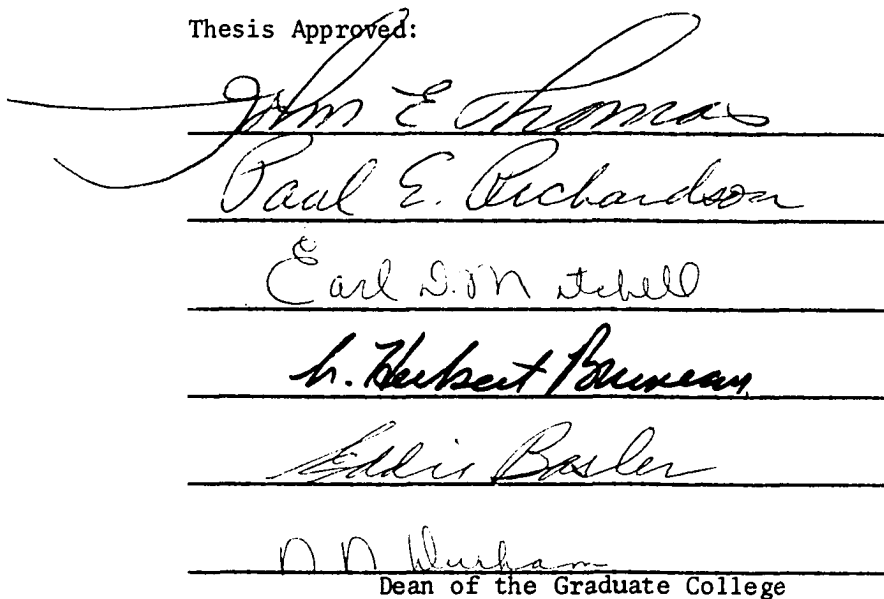 Thesis Approved:
John E Thomas
Paul E. Richardson
Earl D. Mitchell
L. Herbert Bruneau
Eddie Basler
N N Durham
Dean of the Graduate College